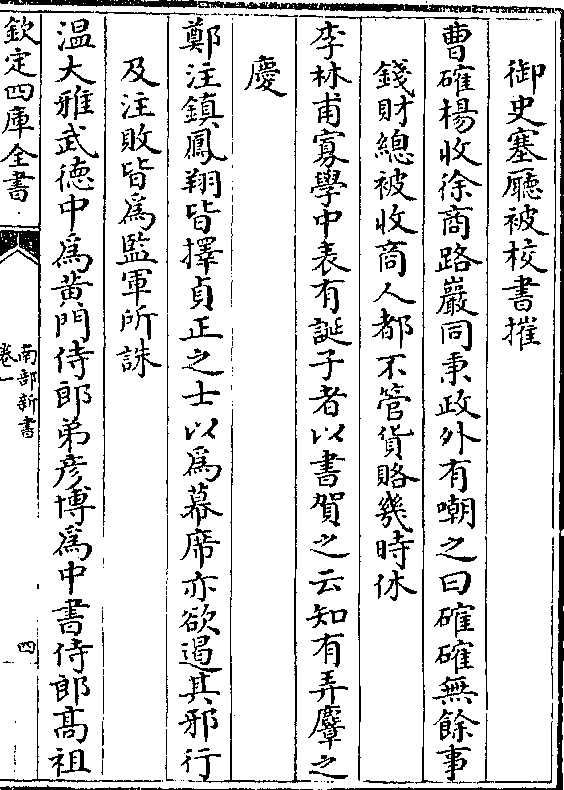 御史塞廳被校書摧
曹確楊收徐商路巖同秉政外有嘲之曰確確無餘事
錢財總被收商人都不管貨賂幾時休
李林甫寡學中表有誕子者以書賀之云知有弄麞之
慶
鄭注鎮鳳翔皆擇貞正之士以爲幕席亦欲遏其邪行
及注敗皆爲監軍所誅
温大雅武德中爲黄門侍郎弟彦博爲中書侍郎髙祖
欽定四庫全書
南部新書
卷一
四